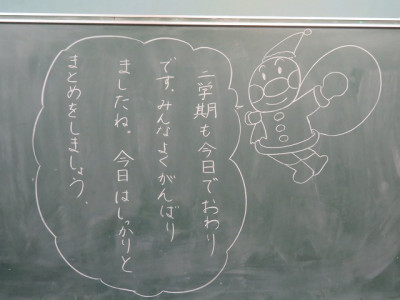 二学期も今日でおわり
です。みんなよくがんばり
ましたね。今日はしっかりと
まとめをしましょう。